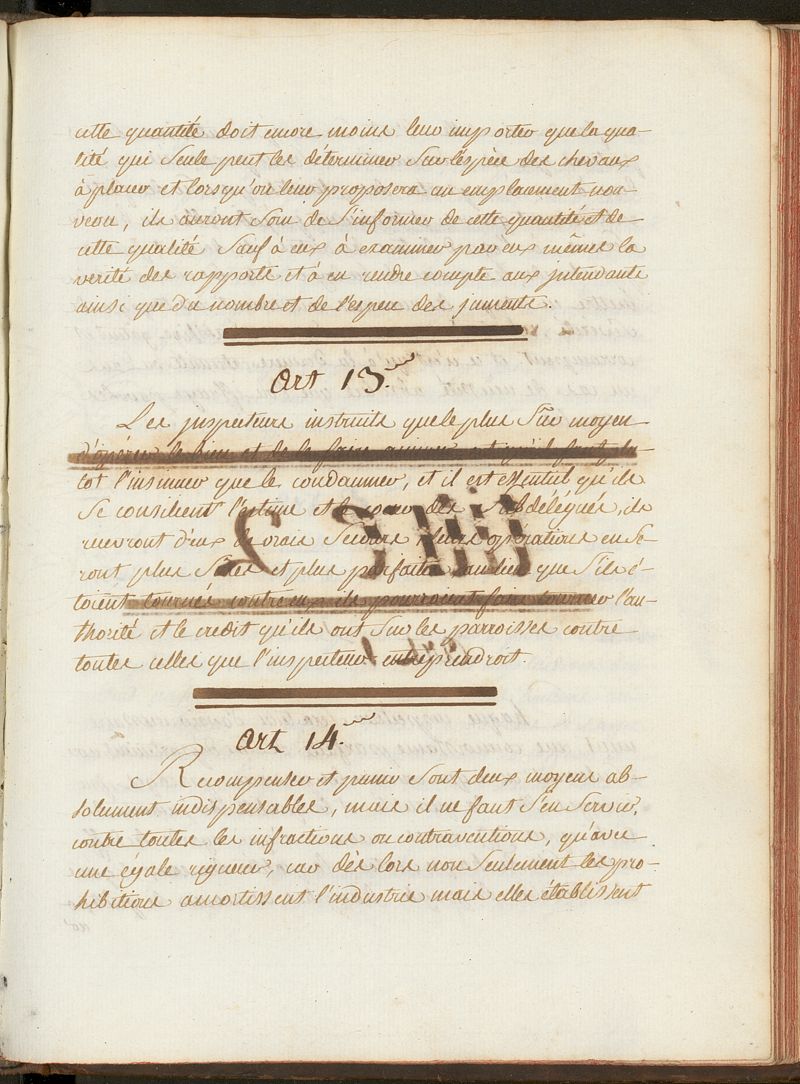 cette quantité doit encore moins leur importer que la qua-
lité qui seule peut les déterminer sur l'espèce des chevaux
à placer et lorsqu'on leur proposera un emplacement nou-
veau, ils auront soin de s'informer de cette quantité et de
cette qualité sauf à eux à examiner par eux mêmes la
verité des rapports et à en rendre compte aux intendants
ainsi que du nombre et de l'espece des juments.
Art 13.me
Les inspecteurs instruits que le plus sur moyen
d'opérer le bien et de le faire aimer est qu'il faut plu-
tot l'insinuer que le condamner, et il est essentiel qu'ils
se concilient l'estime et le coeur des subdélégués, ils
recevront d'eux de vrais secours, leurs opérations en se-
ront plus sures et plus parfaites au lieu que s'ils é-
toient tournés contre eux ils pourroient faire tourner l'au-
thorité et le credit qu'ils ont sur les parroisses contre
toutes celles que l'inspecteur entreprendroit.
Art 14.me
Recompenser et punir sont deux moyens ab-
solument indispensables, mais il ne faut s'en servir,
contre toutes les infractions ou contraventions, qu'avec
une égale rigueur, car dès lors non seulement les pro-
hibitions amortissent l'industrie mais elles établissent